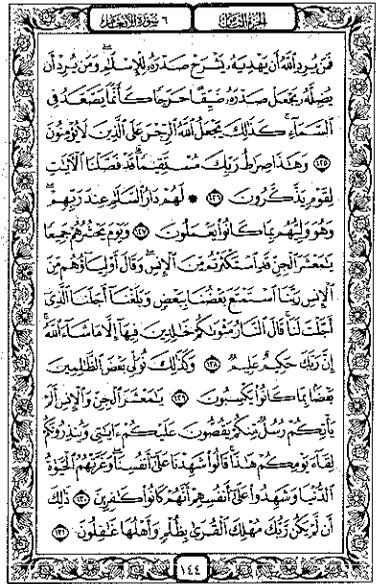 الجزء الثامن ٦ سورة الأنعام
فَمَن يُرِدِ ٱللَّهُ أَن يَهْدِيَهُۥ يَشْرَحْ صَدْرَهُۥ لِلْإِسْلَٰمِ ۖ وَمَن يُرِدْ أَن
يُضِلَّهُۥ يَجْعَلْ صَدْرَهُۥ ضَيِّقًا حَرَجًا كَأَنَّمَا يَصَّعَّدُ فِى
ٱلسَّمَآءِ ۚ كَذَٰلِكَ يَجْعَلُ ٱللَّهُ ٱلرِّجْسَ عَلَى ٱلَّذِينَ لَا يُؤْمِنُونَ
١٢٥ وَهَٰذَا صِرَٰطُ رَبِّكَ مُسْتَقِيمًا ۗ قَدْ فَصَّلْنَا ٱلْءَايَٰتِ
لِقَوْمٍ يَذَّكَّرُونَ ١٢٦ ۞ لَهُمْ دَارُ ٱلسَّلَٰمِ عِندَ رَبِّهِمْ ۖ
وَهُوَ وَلِيُّهُم بِمَا كَانُوا۟ يَعْمَلُونَ ١٢٧ وَيَوْمَ يَحْشُرُهُمْ جَمِيعًا
يَٰمَعْشَرَ ٱلْجِنِّ قَدِ ٱسْتَكْثَرْتُم مِّنَ ٱلْإِنسِ ۖ وَقَالَ أَوْلِيَآؤُهُم مِّنَ
ٱلْإِنسِ رَبَّنَا ٱسْتَمْتَعَ بَعْضُنَا بِبَعْضٍ وَبَلَغْنَآ أَجَلَنَا ٱلَّذِىٓ
أَجَّلْتَ لَنَا ۚ قَالَ ٱلنَّارُ مَثْوَىٰكُمْ خَٰلِدِينَ فِيهَآ إِلَّا مَا شَآءَ ٱللَّهُ ۗ
إِنَّ رَبَّكَ حَكِيمٌ عَلِيمٌ ١٢٨ وَكَذَٰلِكَ نُوَلِّى بَعْضَ ٱلظَّٰلِمِينَ
بَعْضًۢا بِمَا كَانُوا۟ يَكْسِبُونَ ١٢٩ يَٰمَعْشَرَ ٱلْجِنِّ وَٱلْإِنسِ أَلَمْ
يَأْتِكُمْ رُسُلٌ مِّنكُمْ يَقُصُّونَ عَلَيْكُمْ ءَايَٰتِى وَيُنذِرُونَكُمْ
لِقَآءَ يَوْمِكُمْ هَٰذَا ۚ قَالُوا۟ شَهِدْنَا عَلَىٰٓ أَنفُسِنَا ۖ وَغَرَّتْهُمُ ٱلْحَيَوٰةُ
ٱلدُّنْيَا وَشَهِدُوا۟ عَلَىٰٓ أَنفُسِهِمْ أَنَّهُمْ كَانُوا۟ كَٰفِرِينَ ١٣٠ ذَٰلِكَ
أَن لَّمْ يَكُن رَّبُّكَ مُهْلِكَ ٱلْقُرَىٰ بِظُلْمٍ وَأَهْلُهَا غَٰفِلُونَ ١٣١
١٤٤